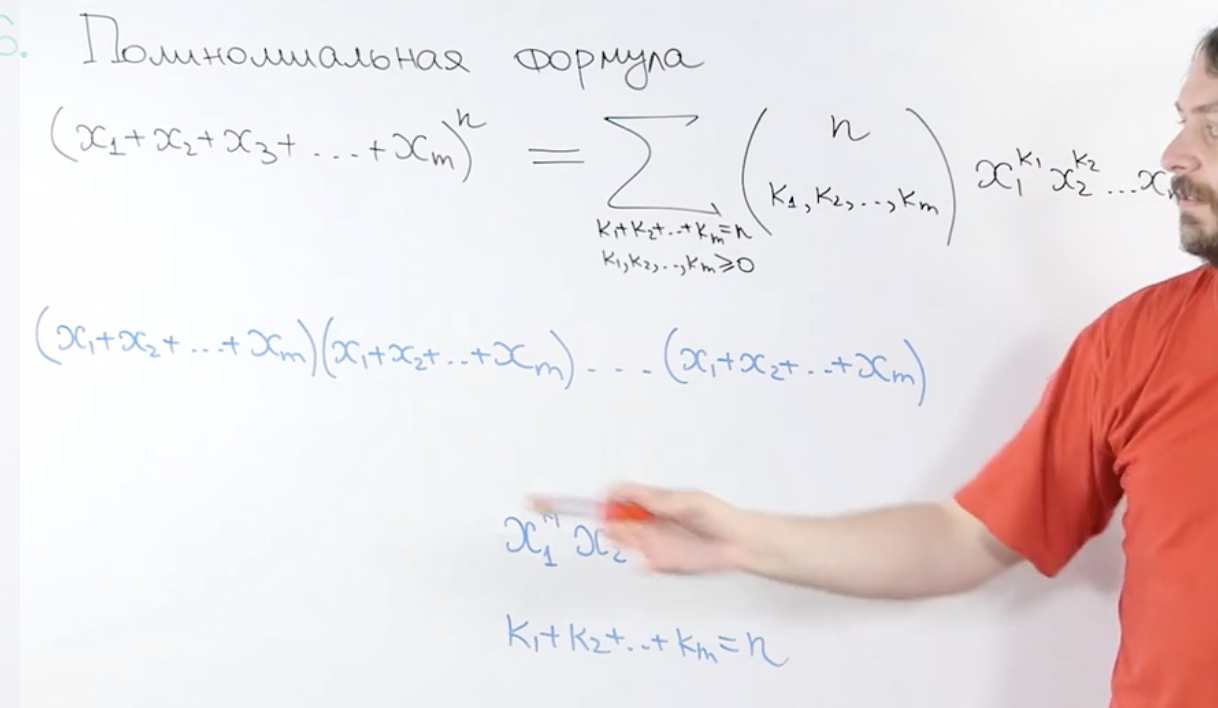 6. Полиномиальная формула
(x₁+x₂+x₃+...+xₘ)ⁿ = ∑ (n k₁,k₂,..,kₘ) x₁^k₁ x₂^k₂ ...x
k₁+k₂+..+kₘ=n
k₁,k₂,..,kₘ⩾0
(x₁+x₂+...+xₘ)(x₁+x₂+..+xₘ)...(x₁+x₂+..+xₘ)
x₁ x₂
k₁+k₂+..+kₘ=n